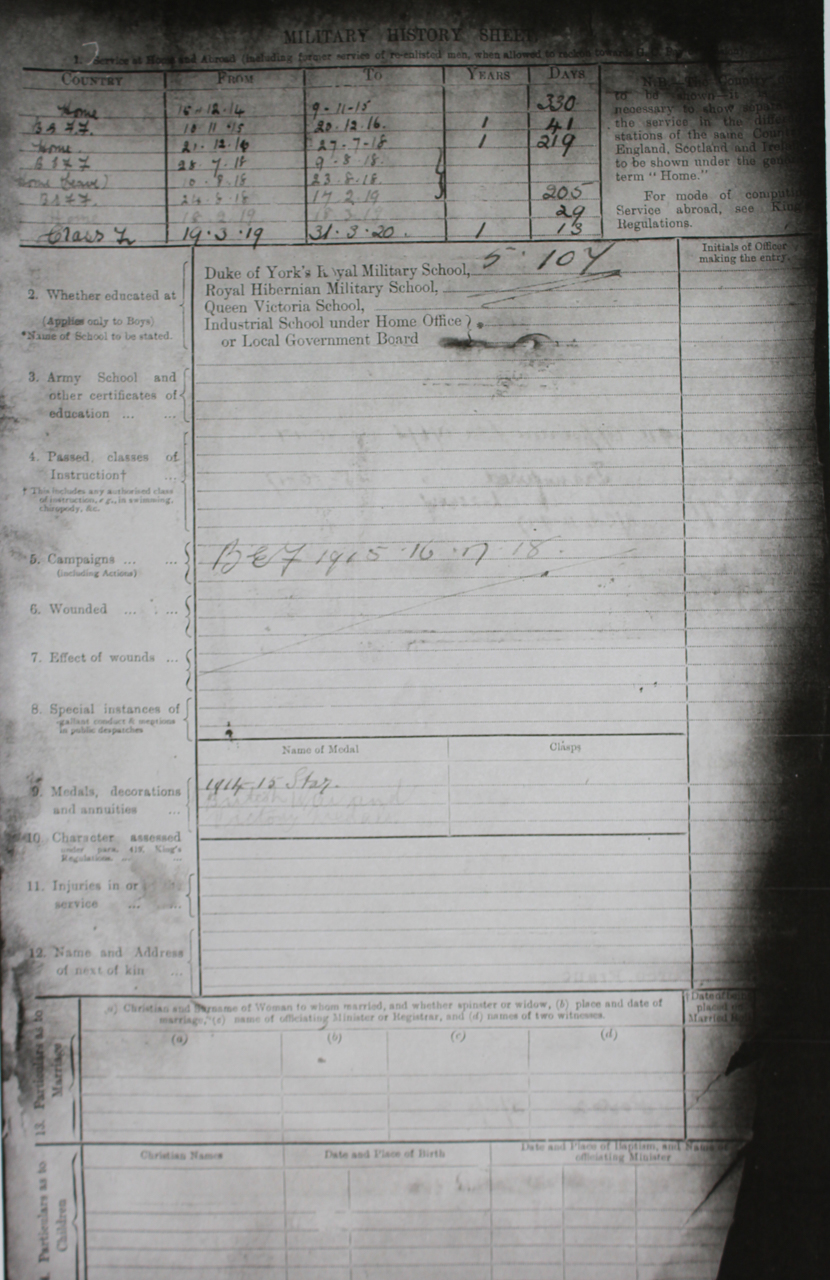 MILITARY HISTORY SHEET
1. Service at Home and Abroad (including former service of re-enlisted men, when allowed to reckon towards
COUNTRY FROM TO YEARS DAYS
Home 15-12-14 9-11-15 330
10 11 15 20.12.16. 1 41
Home 21. 12. 16 27-7-18 1 219
28 7 18 9 8 18.
Home (Leave) 10 8 18 23 8 18.
24 8 18 17 2 19 205
18 2 19 18 3 19 29
Class Z 19.3.19 31.3.20. 1 13
N.B.—The Country
to be shown—it is
necessary to show
the service in the
stations of the same
England, Scotland and
to be shown under the
term "Home."
For mode of
Service abroad, see King
Regulations.
Initials of Officer
making the entry.
2. Whether educated at
(Applies only to Boys)
*Name of School to be stated.
Duke of York's Royal Military School, 5. 107
Royal Hibernian Military School,
Queen Victoria School,
Industrial School under Home Office
or Local Government Board
3. Army School and
other certificates of
education ... ...
4. Passed classes of
Instruction† ...
† This includes any authorised class
of instruction, e.g., in swimming,
chiropody, &c.
5. Campaigns ... ...
(including Actions)
BEF 1915.16.17.18.
6. Wounded ... ... ...
7. Effect of wounds ...
8. Special instances of
gallant conduct & mentions
in public despatches
Name of Medal Clasps
9. Medals, decorations
and annuities ...
1914-15 Star.
British War and
Victory Medals
10 Character assessed
under para. King's
Regulations. ...
11. Injuries in or
service ... ...
12. Name and Address
of next of kin ...
13. Particulars as to
Marriage
(a) Christian and Surname of Woman to whom married, and whether spinster or widow, (b) place and date of
marriage, (c) name of officiating Minister or Registrar, and (d) names of two witnesses.
(a) (b) (c) (d)
placed
Married
Particulars as to
Children
Christian Names Date and Place of Birth Date and Place of Baptism, and Name of
officiating Minister